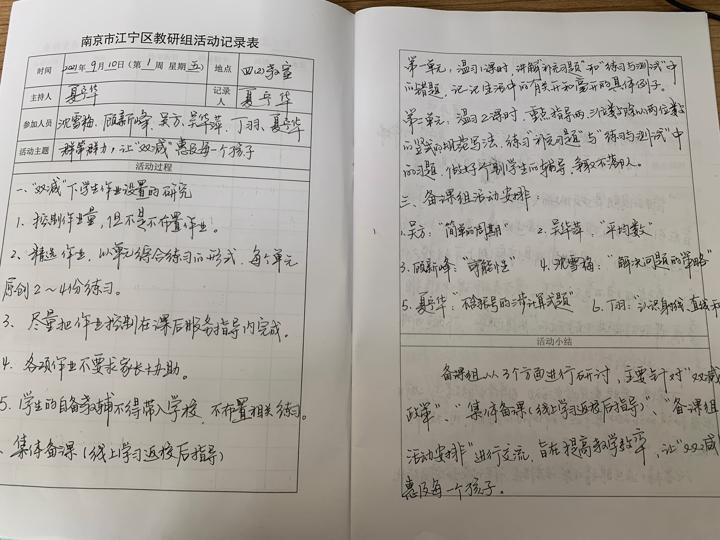 南京市江宁区教研组活动记录表
时间 2021年9月10日(第1周 星期五) 地点 四(2)教室
主持人 夏宁华 记录人 夏宁华
参加人员 沈雪梅、顾新峰、吴方、吴华萍、丁羽、夏宁华
活动主题 群策群力,让“双减”惠及每一个孩子
活动过程
一、“双减”下学生作业设置的研究
1、控制作业量,但不是不布置作业。
2、精选作业,以单元综合练习的形式,每个单元
原创2~4份练习。
3、尽量把作业控制在课后服务指导内完成。
4、各项作业不要求家长协助。
5、学生的自备教辅不得带入学校,不布置相关练习。
、集体备课(线上学习返校后指导)
第一单元:温习1课时,讲解“补充习题”和“练习与测试”中
的错题,记一记生活中的有关升和毫升的具体例子。
第二单元:温习2课时,重点指导两、三位数除以两位数
的竖式的规范写法,练习“补充习题”与“练习与测试”中
的习题,做好个别学生的辅导,争取不落人。
三、备课组活动安排:
1.吴方:“简单的周期” 2.吴华萍:“平均数”
3.顾新峰:“可能性” 4.沈雪梅:“解决问题的策略”
5.夏宁华:“不含括号的三步计算式题” 6.丁羽:“认识射线、直线和
活动小结
备课组从3个方面进行研讨,主要针对“双减
政策”、“集体备课(线上学习返校后指导)”、“备课组
活动安排”进行交流,旨在提高教学效率,让“双减”
惠及每一个孩子。